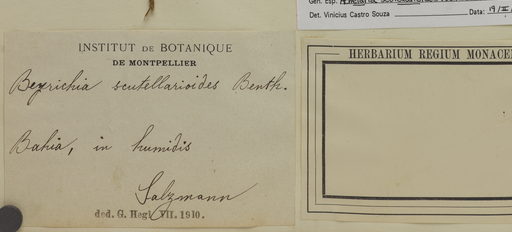 Det. Vinicius Castro Souza Data: 19/II/
INSTITUT DE BOTANIQUE
DE MONTPELLIER
Beyrichia scutellarioides Benth.
Bahia, in humidis
Salzmann
ded. G. Hegi VII. 1910.
HERBARIUM REGIUM MONACE